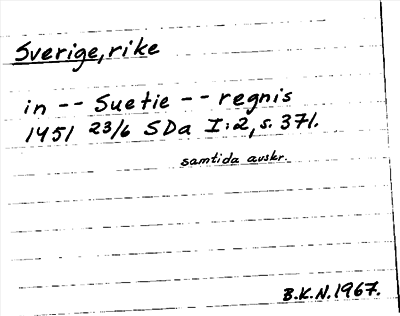 Sverige, rike
in -- Suetie -- regnis
1451 23/6 SDa I:2, s. 371.
samtida avskr.
B.K.N. 1967.